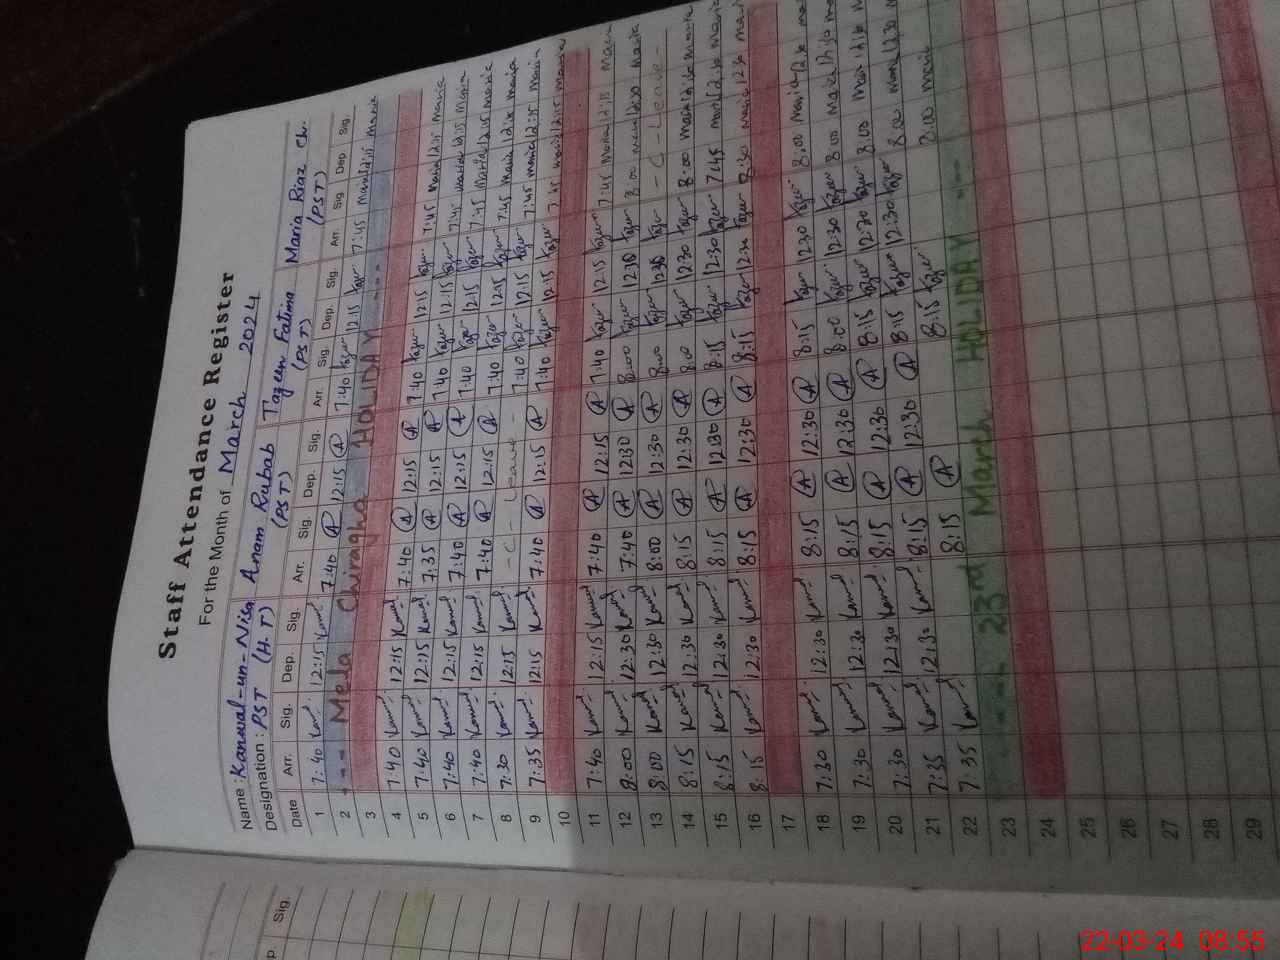 Staff Attendance Register
For the Month of March 2024
Name : Kanwal-un-Nisa Anam Rubab Tazeen Fatima Maria Riaz Ch.
Designation : PST (H.T) (PST) (PST) (PST)
Date Arr. Sig. Dep. Sig. Arr. Sig. Dep. Sig. Arr. Sig. Dep. Sig. Arr. Sig Dep Sig.
1 7:40 Kanwal 12:15 Kanwal 7:40 A 12:15 A 7:40 12:15 7:45 Maria 12:15 Maria
2 Mela Chiragha HOLIDAY
3
4 7:40 Kanwal 12:15 Kanwal 7:40 A 12:15 A 7:40 12:15 7:45 Maria 12:15 Maria
5 7:40 Kanwal 12:15 Kanwal 7:35 A 12:15 A 7:40 12:15 7:45 Maria 12:15 Maria
6 7:40 Kanwal 12:15 Kanwal 7:40 A 12:15 A 7:40 12:15 7:45 Maria 12:15 Maria
7 7:40 Kanwal 12:15 Kanwal 7:40 A 12:15 A 7:40 12:15 7:45 Maria 12:15 Maria
8 7:30 Kanwal 12:15 Kanwal - C - Leave - 7:40 12:15 7:45 Maria 12:15 Maria
9 7:35 Kanwal 12:15 Kanwal 7:40 A 12:15 A 7:40 12:15 7:45 Maria 12:15 Maria
10
11 7:40 Kanwal 12:15 Kanwal 7:40 A 12:15 A 7:40 12:15 7:45 Maria 12:15 Maria
12 8:00 Kanwal 12:30 Kanwal 7:40 A 12:30 A 8:00 8:00 Maria 12:30 Maria
13 8:00 Kanwal 12:30 Kanwal 8:00 A 12:30 A 8:00 12:30 - C - Leave -
14 8:15 Kanwal 12:30 Kanwal 8:15 A 12:30 A 8:00 12:30 8:00 Maria 12:30 Maria
15 8:15 Kanwal 12:30 Kanwal 8:15 A 12:30 A 8:15 12:30 7:45 Maria 12:30 Maria
16 8:15 Kanwal 12:30 Kanwal 8:15 A 12:30 A 8:15 12:30 8:30 Maria 12:30 Maria
17
18 7:30 Kanwal 12:30 Kanwal 8:15 A 12:30 A 8:15 12:30 8:00 Maria 12:30
19 7:30 Kanwal 12:30 Kanwal 8:15 A 12:30 A 8:00 12:30 8:00 Maria 12:30
20 7:30 Kanwal 12:30 Kanwal 8:15 A 12:30 A 8:15 12:30 8:00 Maria 12:30
21 7:35 Kanwal 12:30 Kanwal 8:15 A 12:30 A 8:15 12:30 8:00 Maria 12:30
22 7:35 Kanwal 8:15 A 8:15 8:00 Maria
23 23rd March HOLIDAY
24
25
26
27
28
29
Sig.
p Sig.
22-03-24 08:55